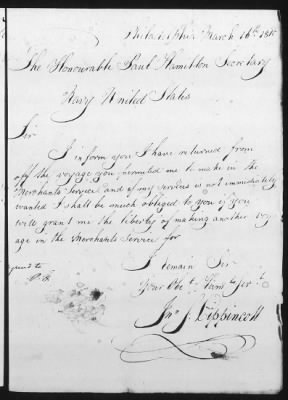 Philadelphia March 16th 1810
The Honourable Paul Hamilton Secretary
Navy United States
Sir
I inform you I have returned from
off the voyage you permited me to make in the
Merchants Service and if my services is not immediately
wanted I shall be much obliged to you if you
will grant me the liberty of making another voy
age in the Merchants Service for
I remain Sir
Your Obet. Humle Servt
Jno J. Lippincott